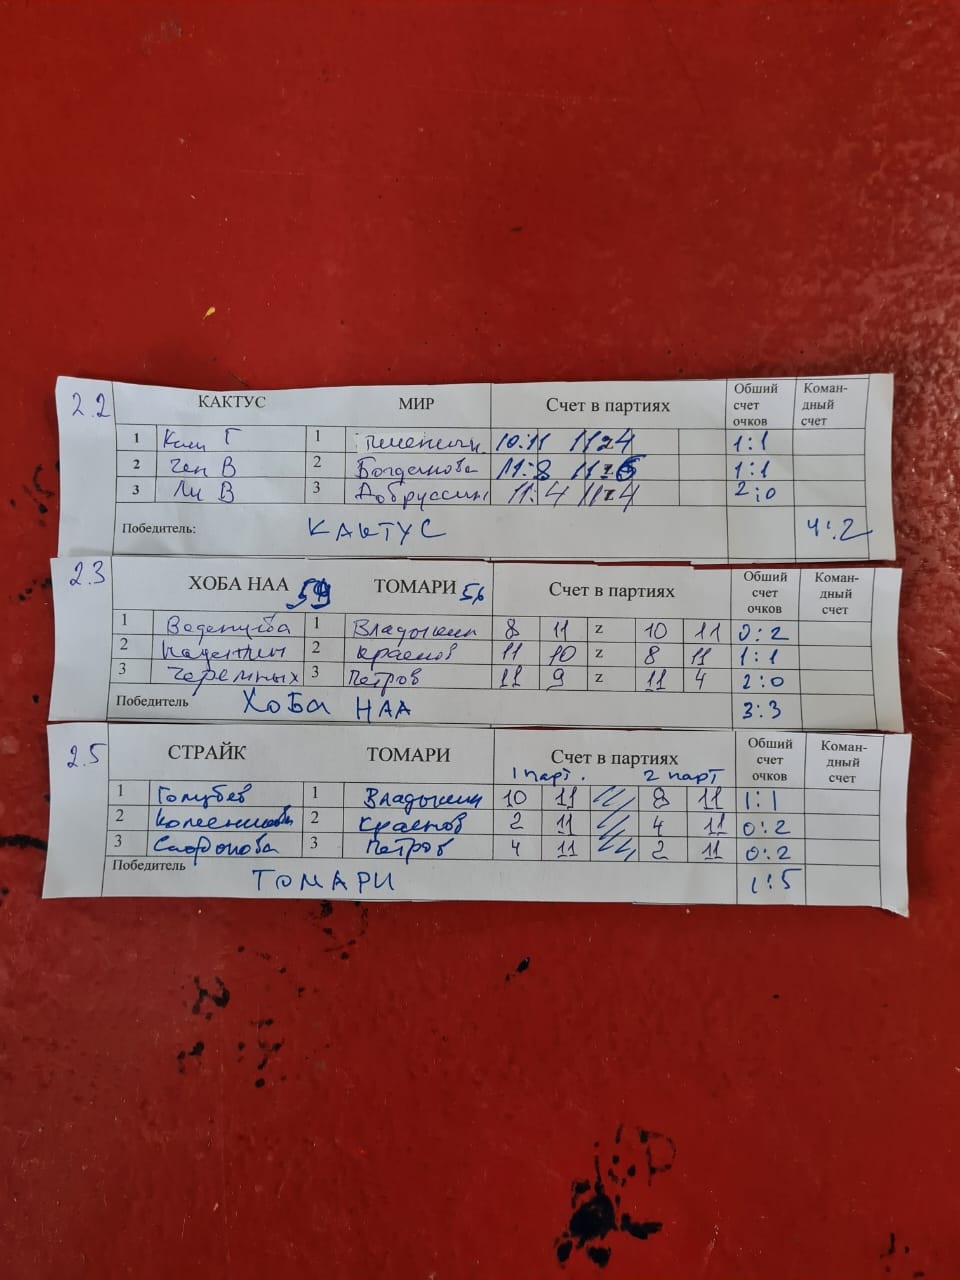 2.2 КАКТУС МИР Счет в партиях Обший счет очков Коман-дный счет
1 Ким Г 1 10:11 11:4 1:1
2 Чен В 2 Богданова 11:8 1:1
3 Ли В 3 Добруссин 11:4 11:4 2:0
Победитель: КАКТУС 4:2
2.3 ХОБА НАА 59 ТОМАРИ 56 Счет в партиях Обший счет очков Коман-дный счет
1 1 Владыкин 8 11 z 10 11 0:2
2 2 Краснов 11 10 z 8 11 1:1
3 Черемных 3 Петров 11 9 z 11 4 2:0
Победитель ХОБА НАА 3:3
2.5 СТРАЙК ТОМАРИ Счет в партиях Обший счет очков Коман-дный счет
1 парт. 2 парт
1 Голубев 1 Владыкин 10 11 8 11 1:1
2 2 Краснов 2 11 4 11 0:2
3 3 Петров 4 11 2 11 0:2
Победитель ТОМАРИ 1:5